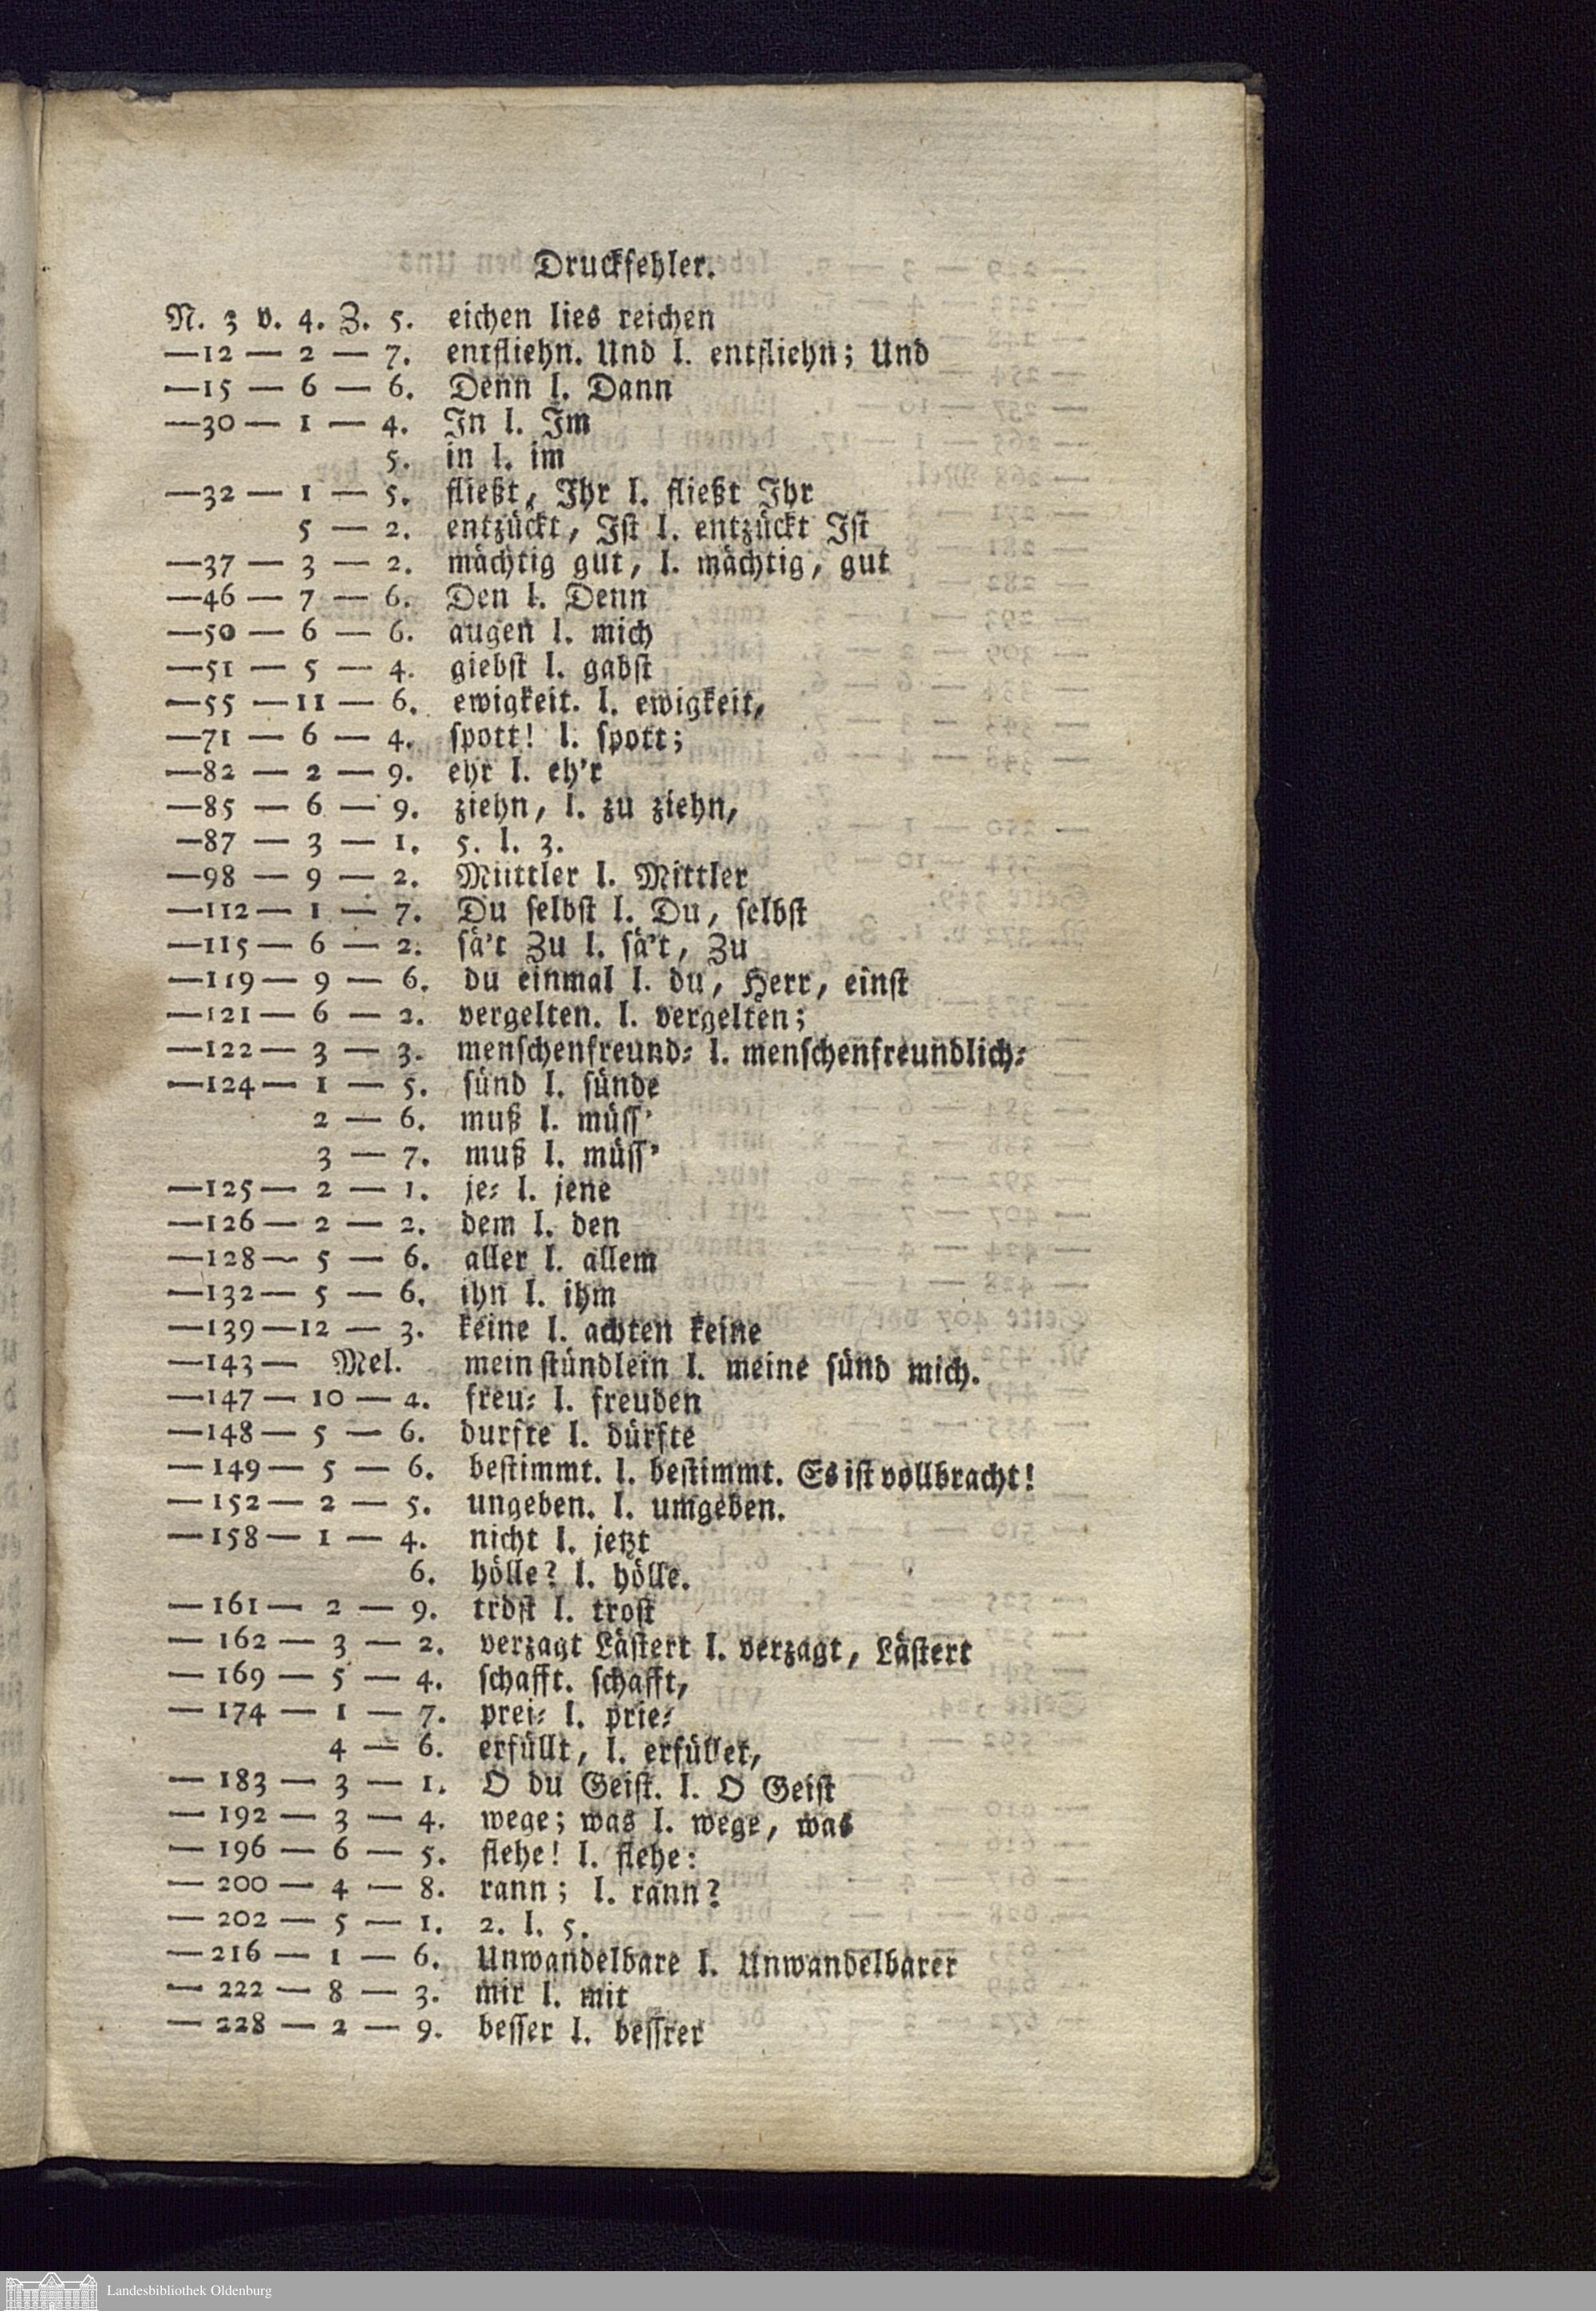 Druckfehler.
N. 3 v. 4. Z. 5. eichen lies reichen
—12 — 2 — 7. entfliehn. Und l. entfliehn; Und
—15 — 6 — 6. Denn l. Dann
—30 — 1 — 4. In l. Im
5. in l. im
—32 — 1 — 5. fließt, Ihr l. fließt Ihr
5 — 2. entzückt, Ist l. entzückt Ist
—37 — 3 — 2. mächtig gut, l. mächtig, gut
—46 — 7 — 6. Den l. Denn
—50 — 6 — 6. augen l. mich
—51 — 5 — 4. giebst l. gabst
—55 —11 — 6. ewigkeit. l. ewigkeit,
—71 — 6 — 4. spott! l. spott;
—82 — 2 — 9. ehr l. eh'r
—85 — 6 — 9. ziehn, l. zu ziehn,
—87 — 3 — 1. 5. l. 3.
—98 — 9 — 2. Müttler l. Mittler
—112— 1 — 7. Du selbst l. Du, selbst
—115— 6 — 2. sä't Zu l. sä't, Zu
—119— 9 — 6. du einmal l. du, Herr, einst
—121— 6 — 2. vergelten. l. vergelten;
—122— 3 — 3. menschenfreund⸗ l. menschenfreundlich⸗
—124— 1 — 5. sünd l. sünde
2 — 6. muß l. müss'
3 — 7. muß l. müss'
—125— 2 — 1. je⸗ l. jene
—126— 2 — 2. dem l. den
—128— 5 — 6. aller l. allem
—132— 5 — 6. ihn l. ihm
—139—12 — 3. keine l. achten keine
—143— Mel. mein stündlein l. meine sünd mich.
—147— 10 — 4. freu⸗ l. freuden
—148— 5 — 6. durfte l. dürfte
— 149— 5 — 6. bestimmt. l. bestimmt. Es ist vollbracht!
— 152— 2 — 5. ungeben. l. umgeben.
— 158— 1 — 4. nicht l. jetzt
6. hölle? l. hölle.
— 161— 2 — 9. tröst l. trost
— 162— 3 — 2. verzagt Lästert l. verzagt, Lästert
— 169— 5 — 4. schafft. schafft,
— 174 — 1 — 7. prei⸗ l. prie⸗
4 — 6. erfüllt, l. erfüllet,
— 183 — 3 — 1. O du Geist. l. O Geist
— 192 — 3 — 4. wege; was l. wege, was
— 196 — 6 — 5. flehe! l. flehe:
— 200 — 4 — 8. rann; l. rann?
— 202 — 5 — 1. 2. l. 5.
— 216 — 1 — 6. Unwandelbare l. Unwandelbarer
— 222 — 8 — 3. mir l. mit
— 228 — 2 — 9. besser l. bessrer
Landesbibliothek Oldenburg